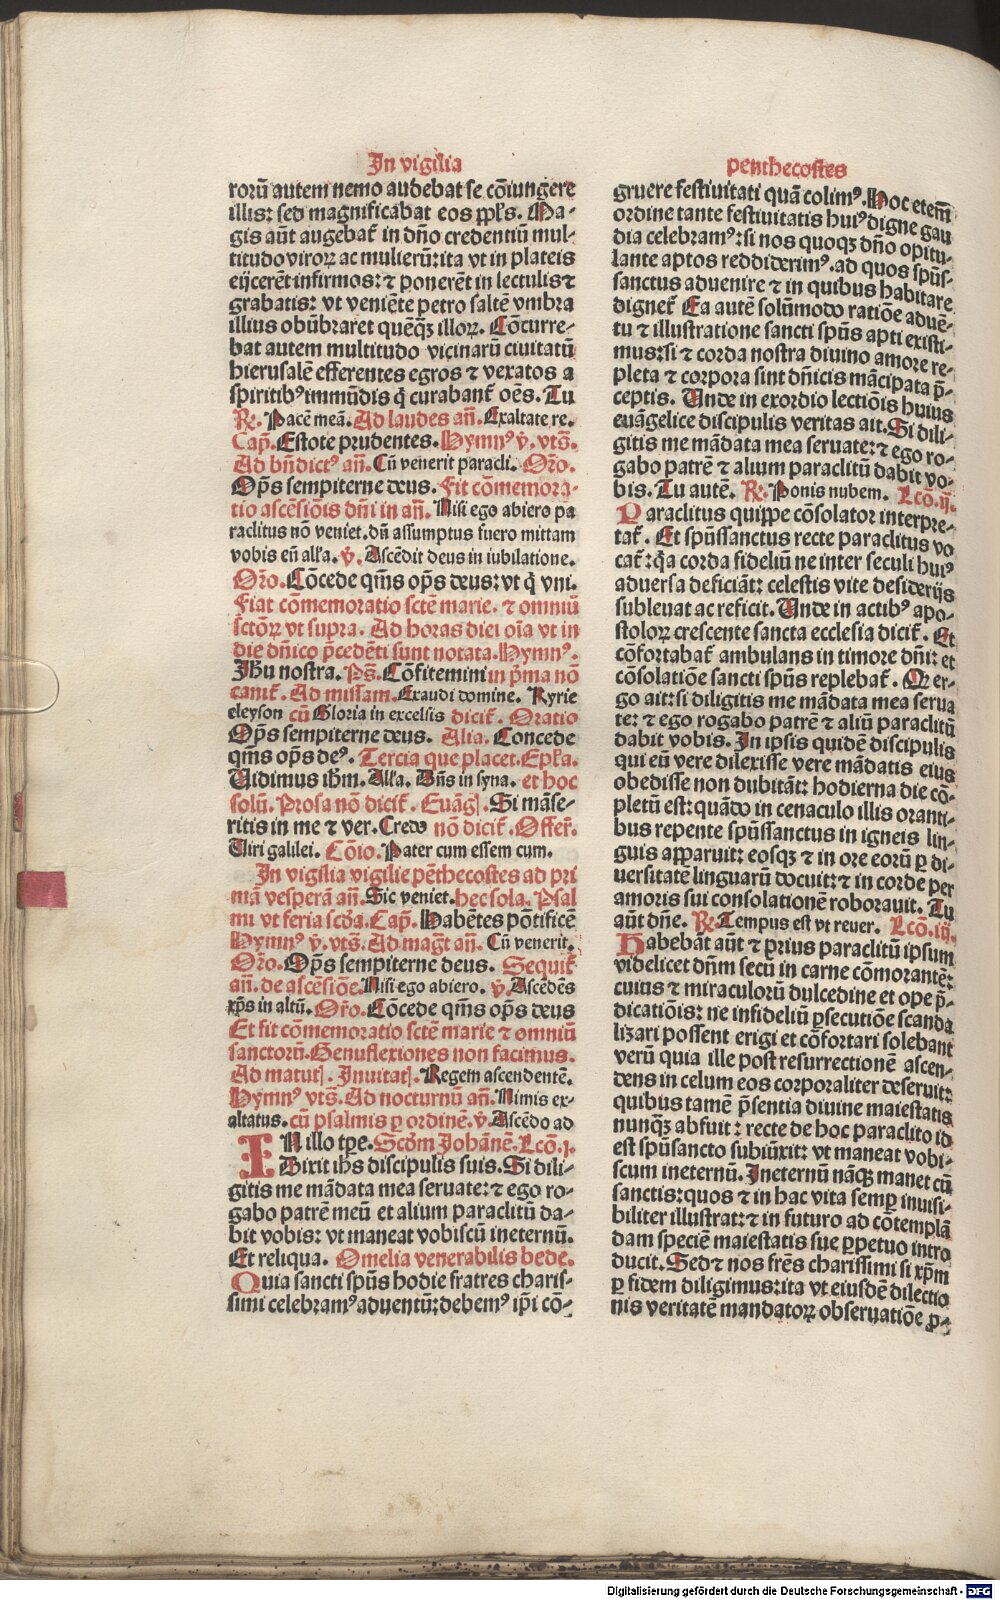 In vigilia
rorū autem nemo audebat se cōiungere
illis: sed magnificabat eos ppl's. Ma-
gis aūt augebat̄ in dn̄o credentiū mul-
titudo viroꝝ ac mulierū: ita vt in plateis
eijcerēt infirmos: ⁊ ponerēt in lectulis ⁊
grabatis: vt veniēte petro saltē vmbra
illius obūbraret quēqꝫ illoꝝ. Cōcurre-
bat autem multitudo vicinarū ciuitatū
hierusalē efferentes egros ⁊ vexatos a
spiritibꝰ immūdis q̄ curabant̄ oēs. Tu
℟. Pacē meā. Ad laudes an̄. Exaltate re.
Cap̄. Estote prudentes. Hymnꝰ ℣. vts̄.
Ad bn̄dictꝰ an̄. Cū venerit paracli. Or̄o.
Op̄s sempiterne deus. Fit cōmemora-
tio ascēsiōis dn̄i in an̄. Nisi ego abiero pa
raclitus nō veniet. dū assumptus fuero mittam
vobis eū all'a. ℣. Ascēdit deus in iubilatione.
Or̄o. Cōcede qm̄s op̄s deus: vt q̄ vni.
Fiat cōmemoratio sctē marie. ⁊ omniū
sctōꝝ vt supra. Ad horas diei oīa vt in
die dn̄ico p̄cedēti sunt notata. Hymnꝰ.
Jhū nostra. Ps̄. Cōfitemini in p̄ma nō
canit̄. Ad missam. Exaudi domine. Kyrie
eleyson cū Gloria in excelsis dicit̄. Oratio
Op̄s sempiterne deus. Alia. Concede
qm̄s op̄s deꝰ. Tercia que placet. Epl'a.
Uidimus ih̄m. All'a. Dn̄s in syna. et hoc
solū. Prosa nō dicit̄. Euāgꝭ. Si māse-
ritis in me ⁊ ver. Credo nō dicit̄. Offer̄.
Uiri galilei. Cōio. Pater cum essem cum.
In vigilia vigilie pēthecostes ad pri
mā vesperā an̄. Sic veniet. hec sola. Psal
mi vt feria scd̄a. Cap̄. Habētes pōtificē
Hymnꝰ ℣. vts̄. Ad maḡt an̄. Cū venerit.
Or̄o. Op̄s sempiterne deus. Sequit̄
an̄. de ascēsiōe. Nisi ego abiero. ℣. Ascēdēs
xp̄s in altū. Or̄o. Cōcede qm̄s op̄s deus
Et fit cōmemoratio sctē marie ⁊ omniū
sanctorū. Genuflexiones non facimus.
Ad matutꝭ. Inuitatꝭ. Regem ascendentē.
Hymnꝰ vts̄. Ad nocturnū an̄. Nimis ex-
altatus. cū psalmis ꝑ ordinē. ℣. Ascēdo ad
IN illo tp̄e. Scd̄m Johānē. Lcō. j.
Dixit ih̄s discipulis suis. Si dili-
gitis me mādata mea seruate: ⁊ ego ro-
gabo patrē meū et alium paraclitū da-
bit vobis: vt maneat vobiscū ineternū.
Et reliqua. Omelia venerabilis bede.
Quia sancti sp̄us hodie fratres charis-
simi celebramꝰ aduentū: debemꝰ ip̄i cō-
penthecostes
gruere festiuitati quā colimꝰ. Hoc etem̄
ordine tante festiuitatis huiꝰ digne gau
dia celebramꝰ: si nos quoqꝫ dn̄o opitu-
lante aptos reddiderimꝰ. ad quos sp̄us-
sanctus aduenire ⁊ in quibus habitare
dignet̄. Ea autē solūmodo ratiōe aduē-
tu ⁊ illustratione sancti sp̄us apti existi-
mus: si ⁊ corda nostra diuino amore re-
pleta ⁊ corpora sint dn̄icis mācipata p̄-
ceptis. Unde in exordio lectiōis huius
euāgelice discipulis veritas ait. Si dili-
gitis me mādata mea seruate: ⁊ ego ro-
gabo patrē ⁊ alium paraclitū dabit vo-
bis. Tu autē. ℟. Ponis nubem. Lcō. ij.
Paraclitus quippe cōsolator interpre-
tat̄. Et sp̄ussanctus recte paraclitus vo
cat̄: q̄a corda fideliū ne inter seculi huiꝰ
aduersa deficiāt: celestis vite desiderijs
subleuat ac reficit. Unde in actibꝰ apo-
stoloꝝ crescente sancta ecclesia dicit̄. Et
cōfortabat̄ ambulans in timore dn̄i: et
cōsolatiōe sancti sp̄us replebat̄. Qr er-
go ait: si diligitis me mādata mea serua
te: ⁊ ego rogabo patrē ⁊ aliū paraclitū
dabit vobis. In ipsis quidē discipulis
qui eū vere dilexisse vere mādatis eius
obedisse non dubitāt: hodierna die cō-
pletū est: quādo in cenaculo illis oranti-
bus repente sp̄ussanctus in igneis lin-
guis apparuit: eosqꝫ ⁊ in ore eorū ꝑ di-
uersitatē linguarū docuit: ⁊ in corde per
amoris sui consolationē roborauit. Tu
aūt dn̄e. ℟. Tempus est vt reuer. Lcō. iij.
Habebāt aūt ⁊ prius paraclitū ipsum
videlicet dn̄m secū in carne cōmorantē:
cuius ⁊ miraculorū dulcedine et ope p̄-
dicatiōis: ne infideliū ꝑsecutiōe scanda
lizari possent erigi et cōfortari solebant
verū quia ille post resurrectionē ascen-
dens in celum eos corporaliter deseruit:
quibus tamē p̄sentia diuine maiestatis
nunqꝫ abfuit: recte de hoc paraclito id
est sp̄usancto subiūxit: vt maneat vobi-
scum ineternū. Ineternū nāqꝫ manet cū
sanctis: quos ⁊ in hac vita semꝑ inuisi-
biliter illustrat: ⁊ in futuro ad cōtemplā
dam speciē maiestatis sue ꝑpetuo intro
ducit. Sed ⁊ nos frēs charissimi si xp̄m
ꝑ fidem diligimus: ita vt eiusdē dilectio
nis veritatē mandatoꝝ obseruatiōe ꝓ-
Digitalisierung gefördert durch die Deutsche Forschungsgemeinschaft - DFG